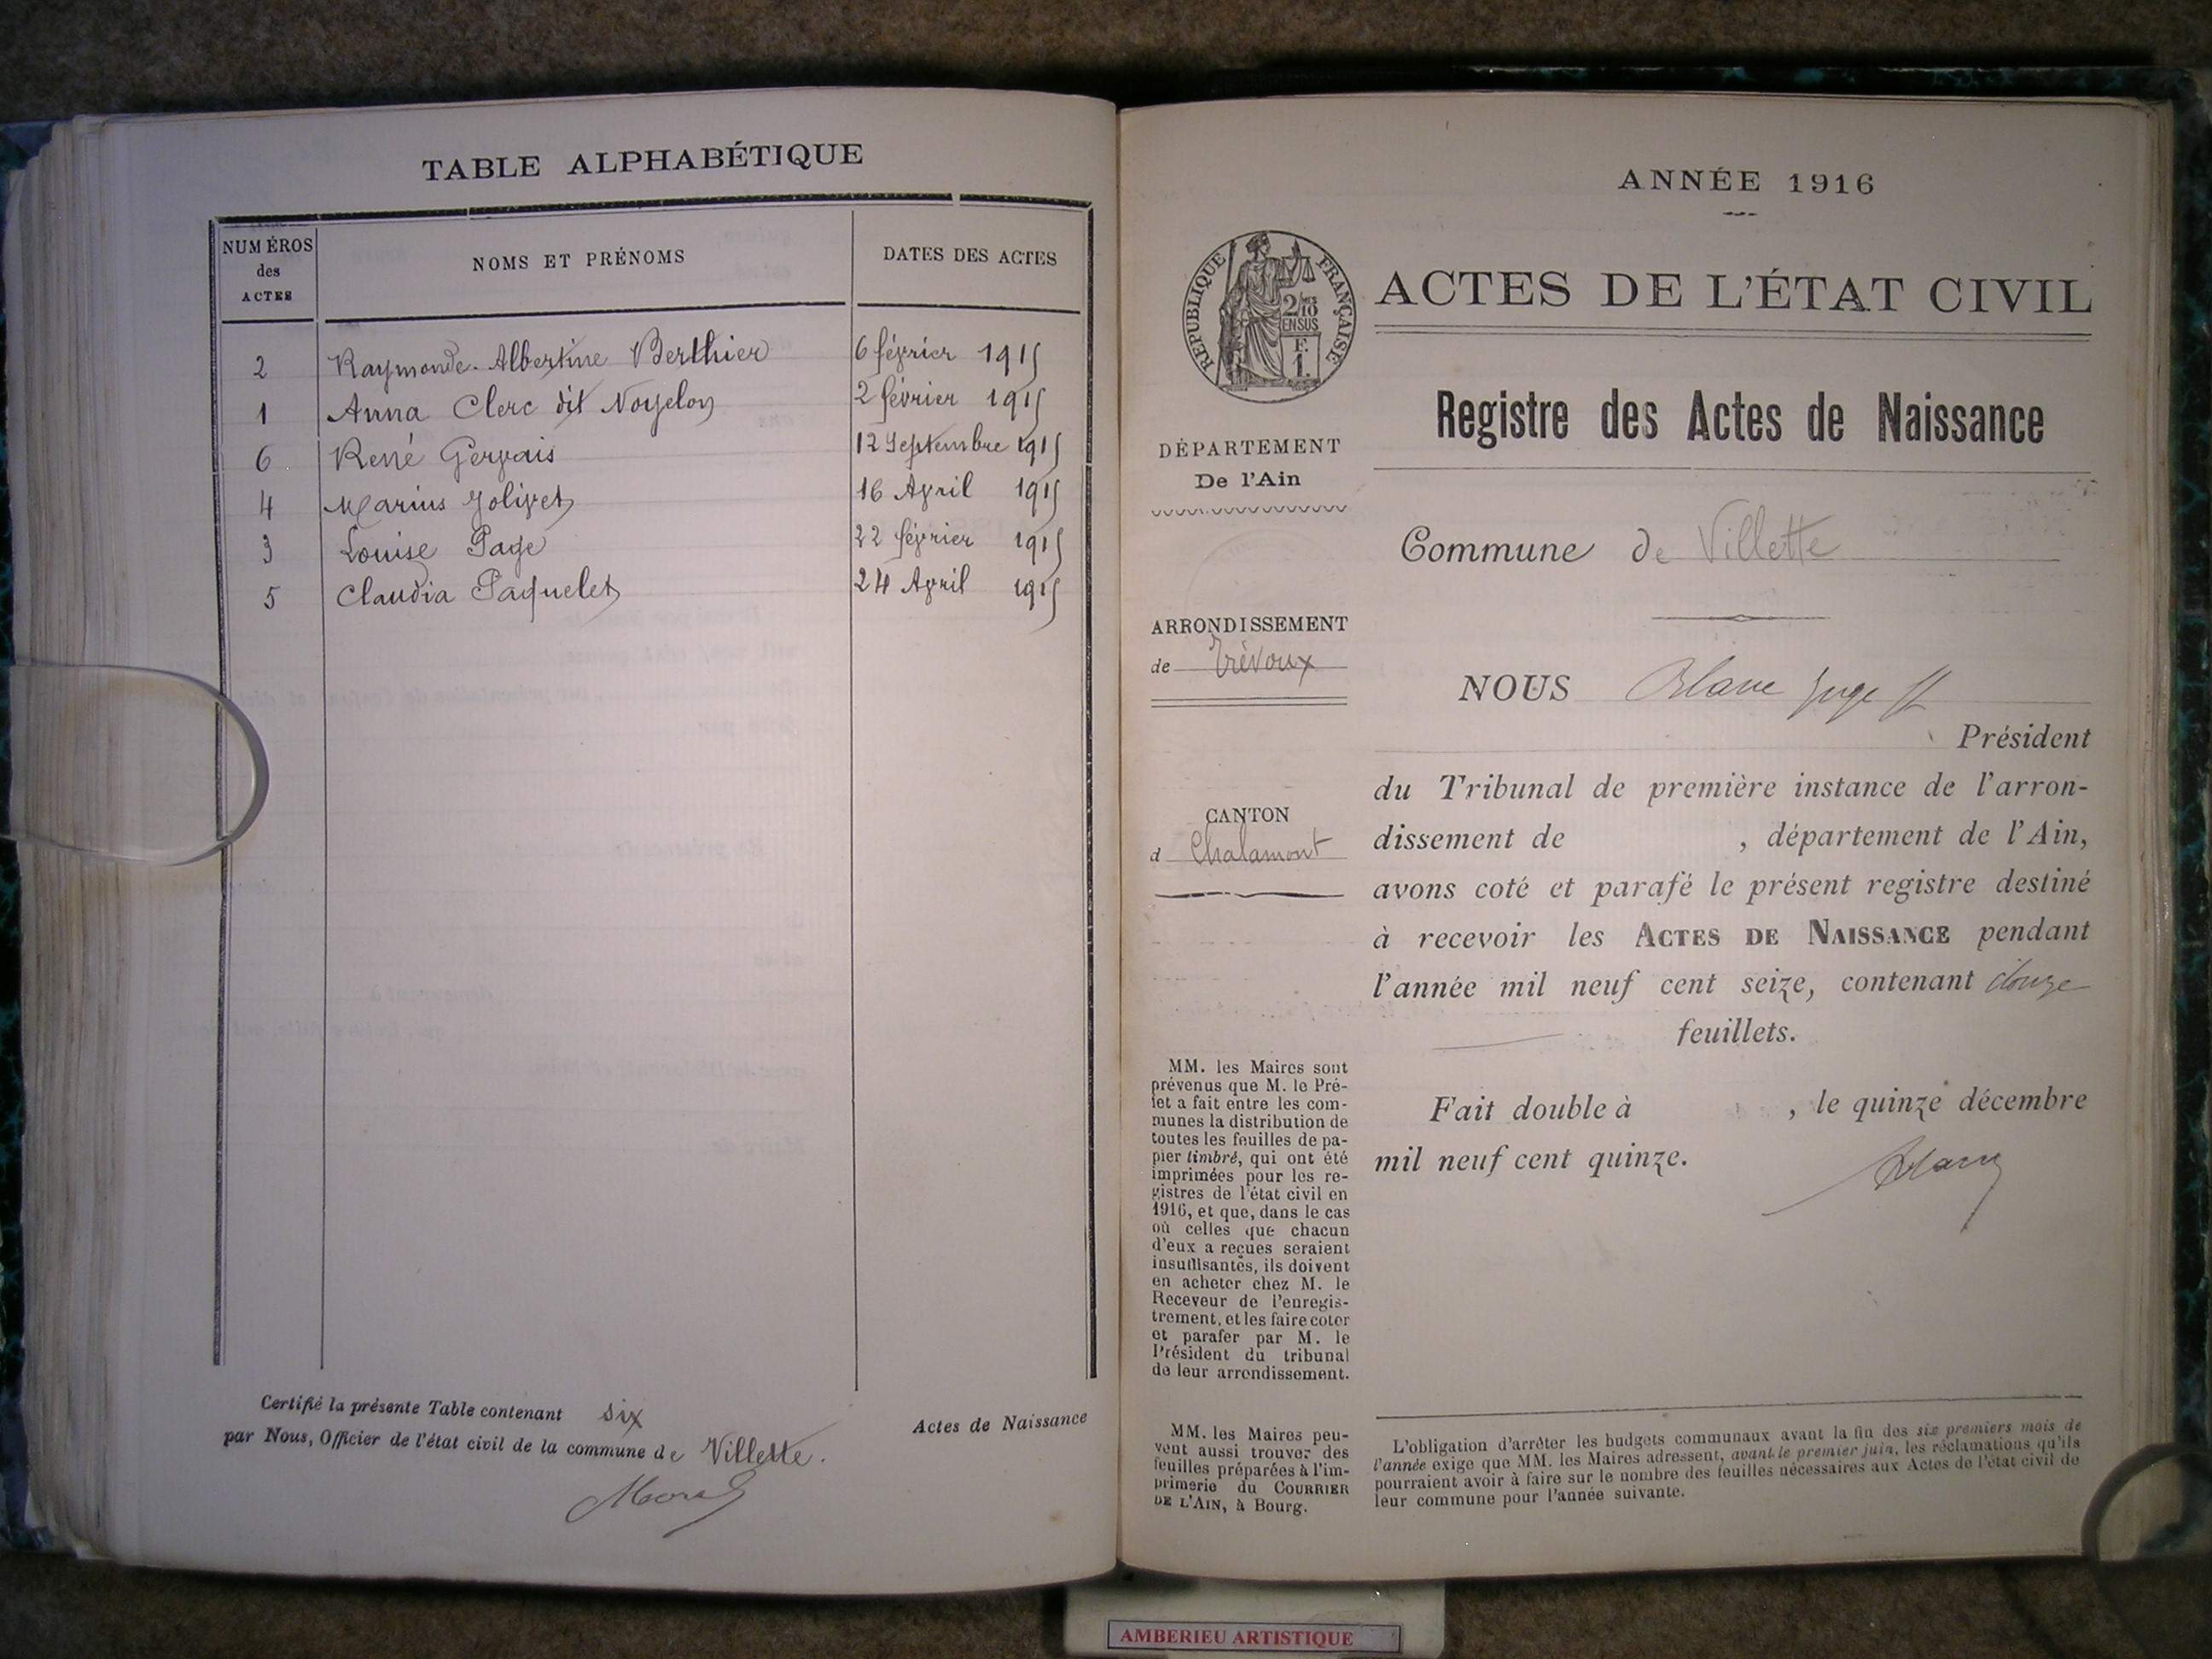 TABLE ALPHABÉTIQUE
NUMÉROS
des
ACTES
NOMS ET PRÉNOMS
DATES DES ACTES
2 Raymonde Albertine Berthier 6 février 1915
1 Anna Clerc dit Noyelon 2 février 1915
6 René Gervais 12 Septembre 1915
4 Marius Jolivet 16 Avril 1915
3 Louise Page 22 février 1915
5 Claudia Paquelet 24 Avril 1915
Certifié la présente Table contenant six Actes de Naissance
par Nous, Officier de l'état civil de la commune de Villette.
Morel
ANNÉE 1916
RÉPUBLIQUE FRANÇAISE
2/10
EN SUS
F.
1.
ACTES DE L'ÉTAT CIVIL
Registre des Actes de Naissance
DÉPARTEMENT
De l'Ain
Commune de Villette
ARRONDISSEMENT
de Trévoux
NOUS Blanc Juge
Président
CANTON
d Chalamont
du Tribunal de première instance de l'arron-
dissement de , département de l'Ain,
avons coté et parafé le présent registre destiné
à recevoir les ACTES DE NAISSANCE pendant
l'année mil neuf cent seize, contenant douze
feuillets.
Fait double à , le quinze décembre
mil neuf cent quinze.
Blanc
MM. les Maires sont
prévenus que M. le Pré-
fet a fait entre les com-
munes la distribution de
toutes les feuilles de pa-
pier timbré, qui ont été
imprimées pour les re-
gistres de l'état civil en
1916, et que, dans le cas
où celles que chacun
d'eux a reçues seraient
insuffisantes, ils doivent
en acheter chez M. le
Receveur de l'enregis-
trement, et les faire coter
et parafer par M. le
Président du tribunal
de leur arrondissement.
MM. les Maires peu-
vent aussi trouver des
feuilles préparées à l'im-
primerie du COURRIER
DE L'AIN, à Bourg.
L'obligation d'arrêter les budgets communaux avant la fin des six premiers mois de
l'année exige que MM. les Maires adressent, avant le premier juin, les réclamations qu'ils
pourraient avoir à faire sur le nombre des feuilles nécessaires aux Actes de l'état civil de
leur commune pour l'année suivante.
AMBERIEU ARTISTIQUE